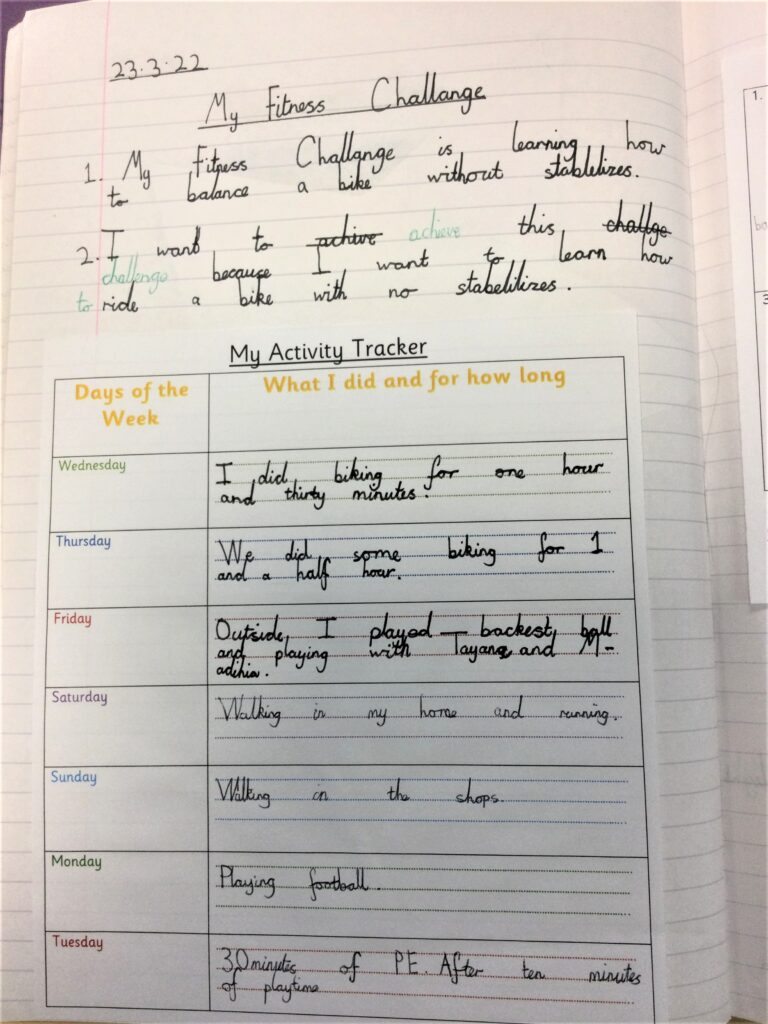 23.3.22
My Fitness Challange
1. My Fitness Challange is learning how
to balance a bike without stablelizes.
2. I want to achive achieve this challge
challenge because I want to learn how
to ride a bike with no stabelilizes.
My Activity Tracker
Days of the Week
What I did and for how long
Wednesday
I did biking for one hour
and thirty minutes.
Thursday
We did some biking for 1
and a half hour.
Friday
Outside, I played backest ball
and playing with and
Saturday
Walking in my home and running.
Sunday
Walking in the shops.
Monday
Playing football.
Tuesday
30 minutes of PE. After ten minutes
of playtime
1.
3